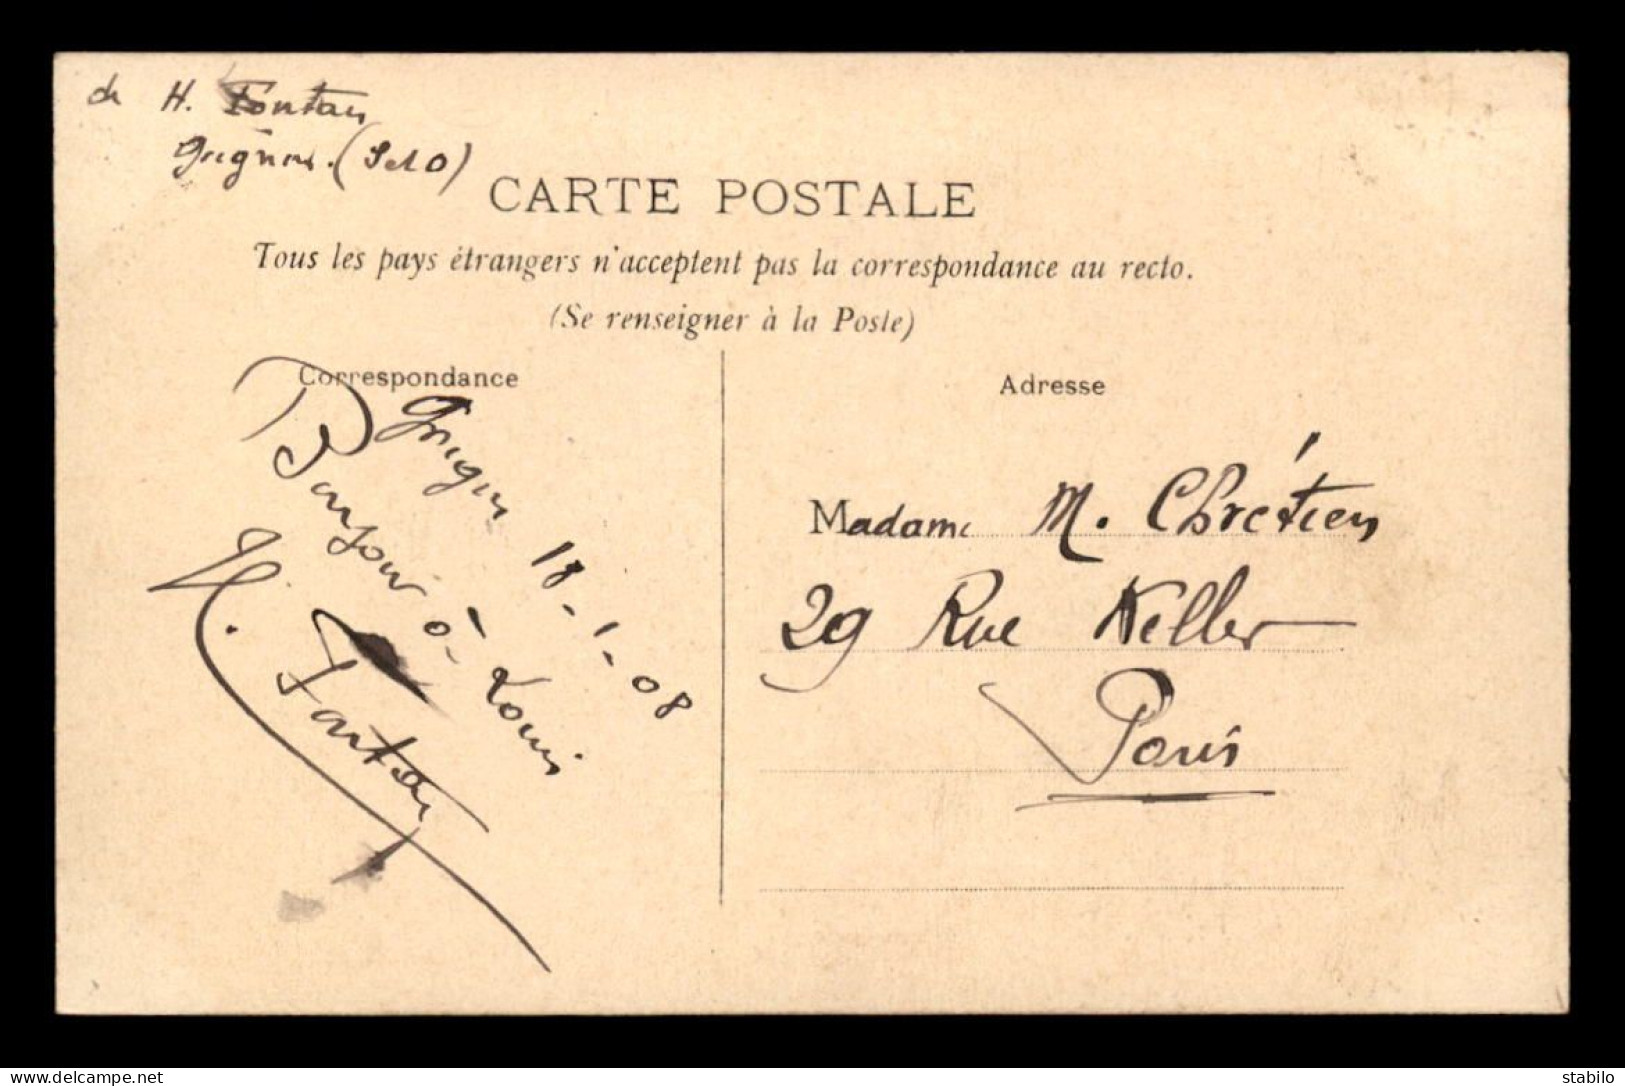 de H. Fontan
Grignon. (S et O)
CARTE POSTALE
Tous les pays étrangers n'acceptent pas la correspondance au recto.
(Se renseigner à la Poste)
Correspondance
Grignon 18-1-08
Bonjour à Louis
H. Fontan
Adresse
Madame M. Chrétien
29 Rue Keller
Paris
www.delcampe.net
stabilo